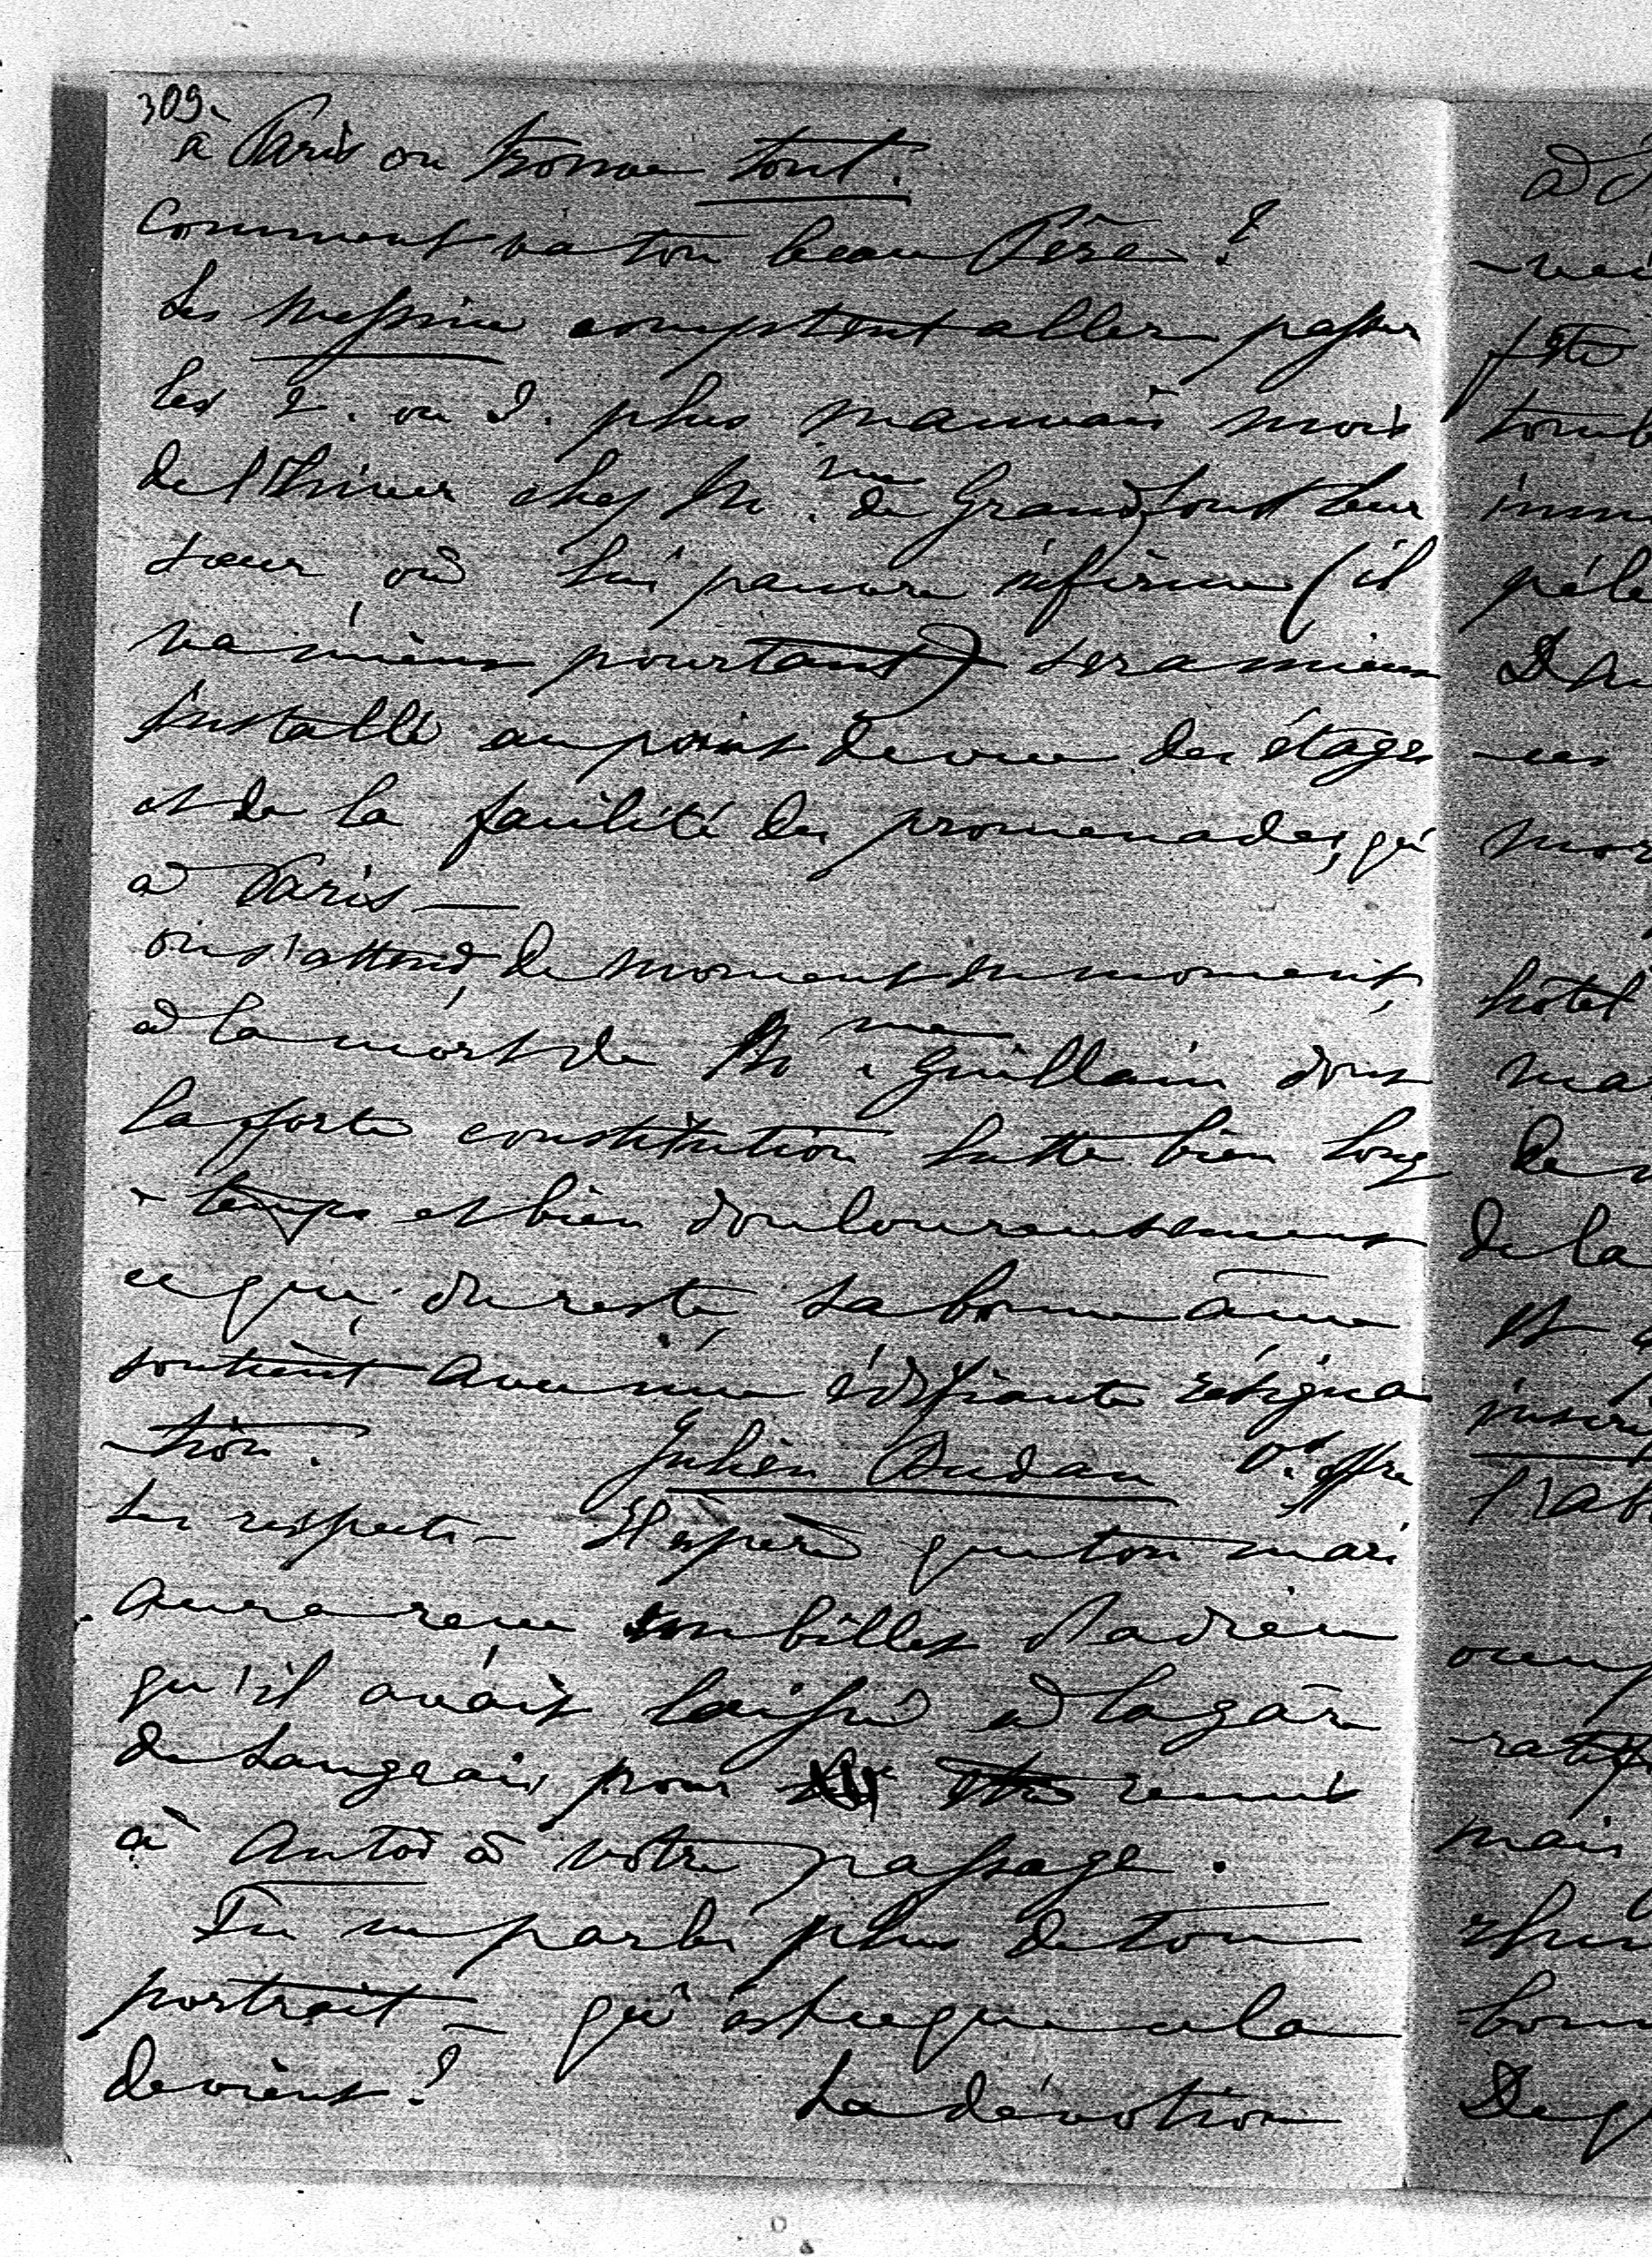 309.
à Paris on trouve tout.
Comment va ton beau Père ?
Les Messine comptent aller passer
les 2. ou 3. plus mauvais mois
de l'hiver chez Mme. de Grand leur
sœur où lui pauvre infirme (il
va mieux pourtant) sera mieux
installé au point de vue des étages
et de la facilité des promenades, qu'
à Paris —
on s'attend, de moment en moment,
à la mort de Mme. Guillain dont
la forte constitution lutte bien long
- temps et bien douloureusement
ce que, du reste, sa bonne âme
soutient avec une édifiante résigna
-tion. Julien Audan t'offre
ses respects - Il espère que ton mari
aura reçu son billet d'adieu
qu'il avait laissé à la gare
de Langeais, pour remis
à à votre passage.
Tu ne parles plus de ton
portrait - qu'est ce que cela
devient ? La dévotion
à
-vei
fête
tomb
imm
péle
-ces
mor
hôtel
ma
de
de la
et
inscri
l'ab
occup
mais
De